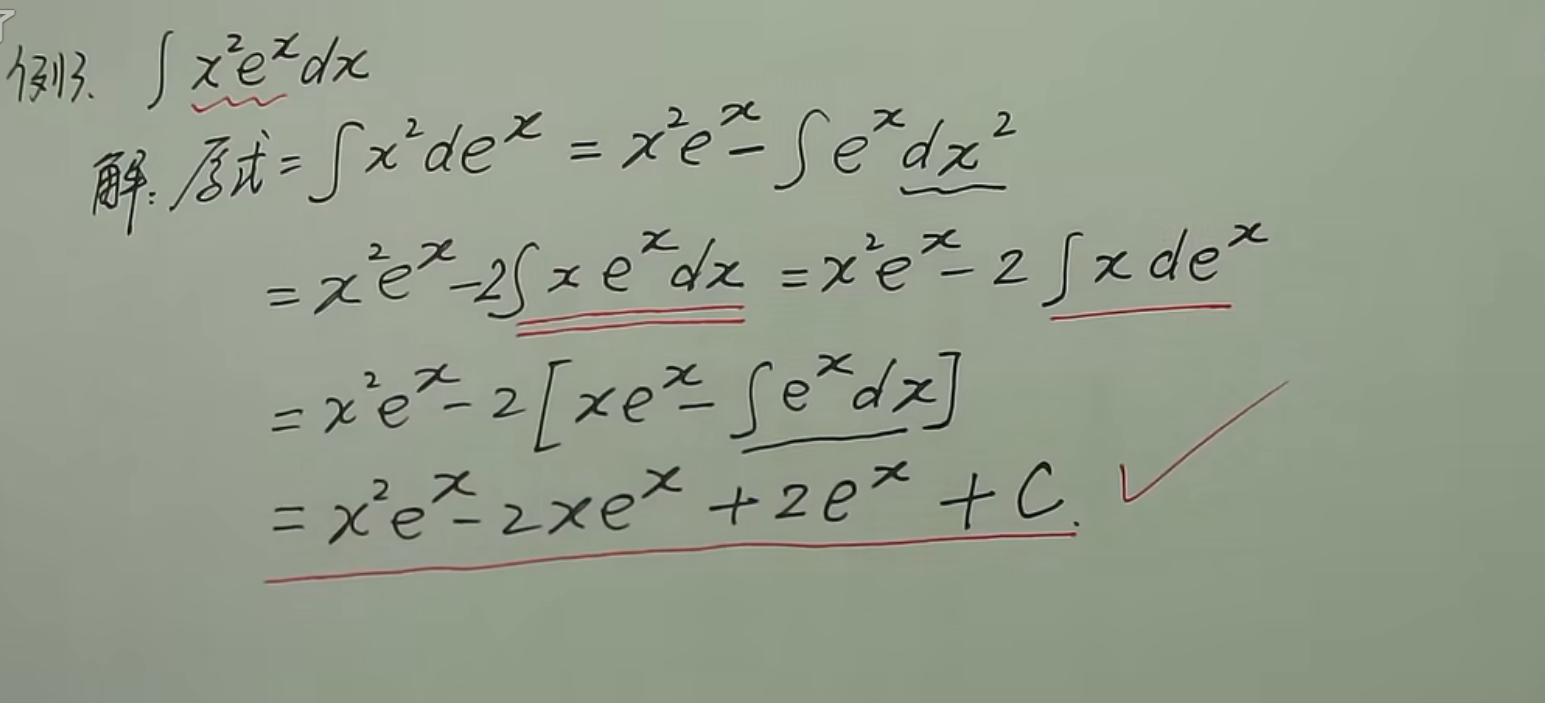 例3. ∫x²eˣdx
解: 原式=∫x²deˣ = x²eˣ-∫eˣdx²
= x²eˣ-2∫xeˣdx = x²eˣ-2∫xdeˣ
= x²eˣ-2[xeˣ-∫eˣdx]
= x²eˣ-2xeˣ+2eˣ+C.